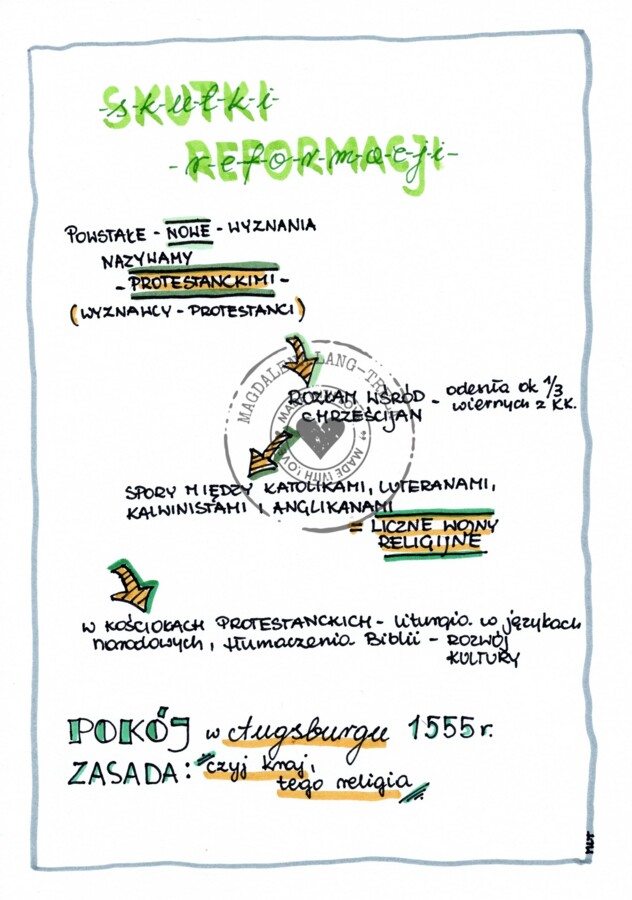 SKUTKI
REFORMACJI
POWSTAŁE - NOWE - WYZNANIA
NAZYWAMY
- PROTESTANCKIMI -
(WYZNAWCY - PROTESTANCI)
ROZŁAM WŚRÓD - odeszła ok 1/3
CHRZEŚCIJAN wiernych z KK.
SPORY MIĘDZY KATOLIKAMI, LUTERANAMI,
KALWINISTAMI I ANGLIKANAMI
= LICZNE WOJNY
RELIGIJNE
W KOŚCIOŁACH PROTESTANCKICH - liturgia w językach
narodowych, tłumaczenia Biblii - ROZWÓJ
KULTURY
POKÓJ w Augsburgu 1555 r.
ZASADA: "czyj kraj,
tego religia"
MAGDALENA LANG-
MADE WITH LOVE
MLT